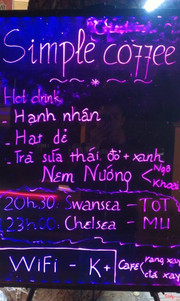 Simple coffee
Hot drink
- Hạnh nhân
- Hạt dẻ
- Trà sữa thái đỏ + xanh
Nem Nướng < Ngô
Khoai
20h30: Swansea - TOT
23h00: Chelsea - MU
WiFi - K+
Cafe rang xay
đá xay